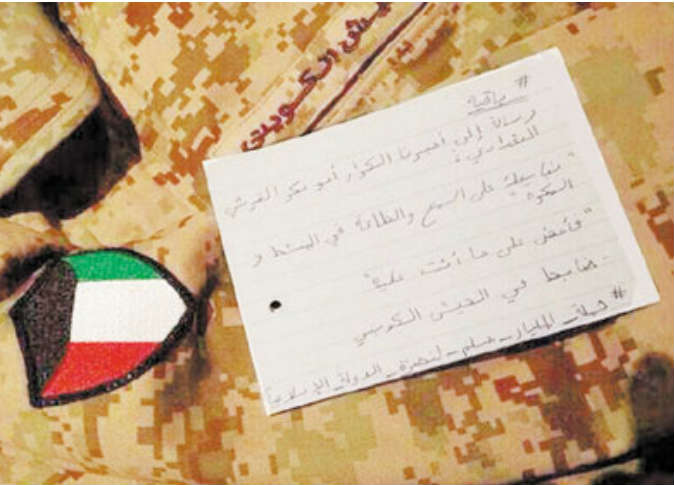 يش الكويتي
#
رسالة إلى أميرنا الكرار أبو بكر القرشي
البغدادي :
"نبايعك على السمع والطاعة في المنشط و
المكره"
"وأمض على ما أنت عليه"
- ضابط في الجيش الكويتي
#حملة_المليار_مسلم_لنصرة_الدولة_الإسلامية